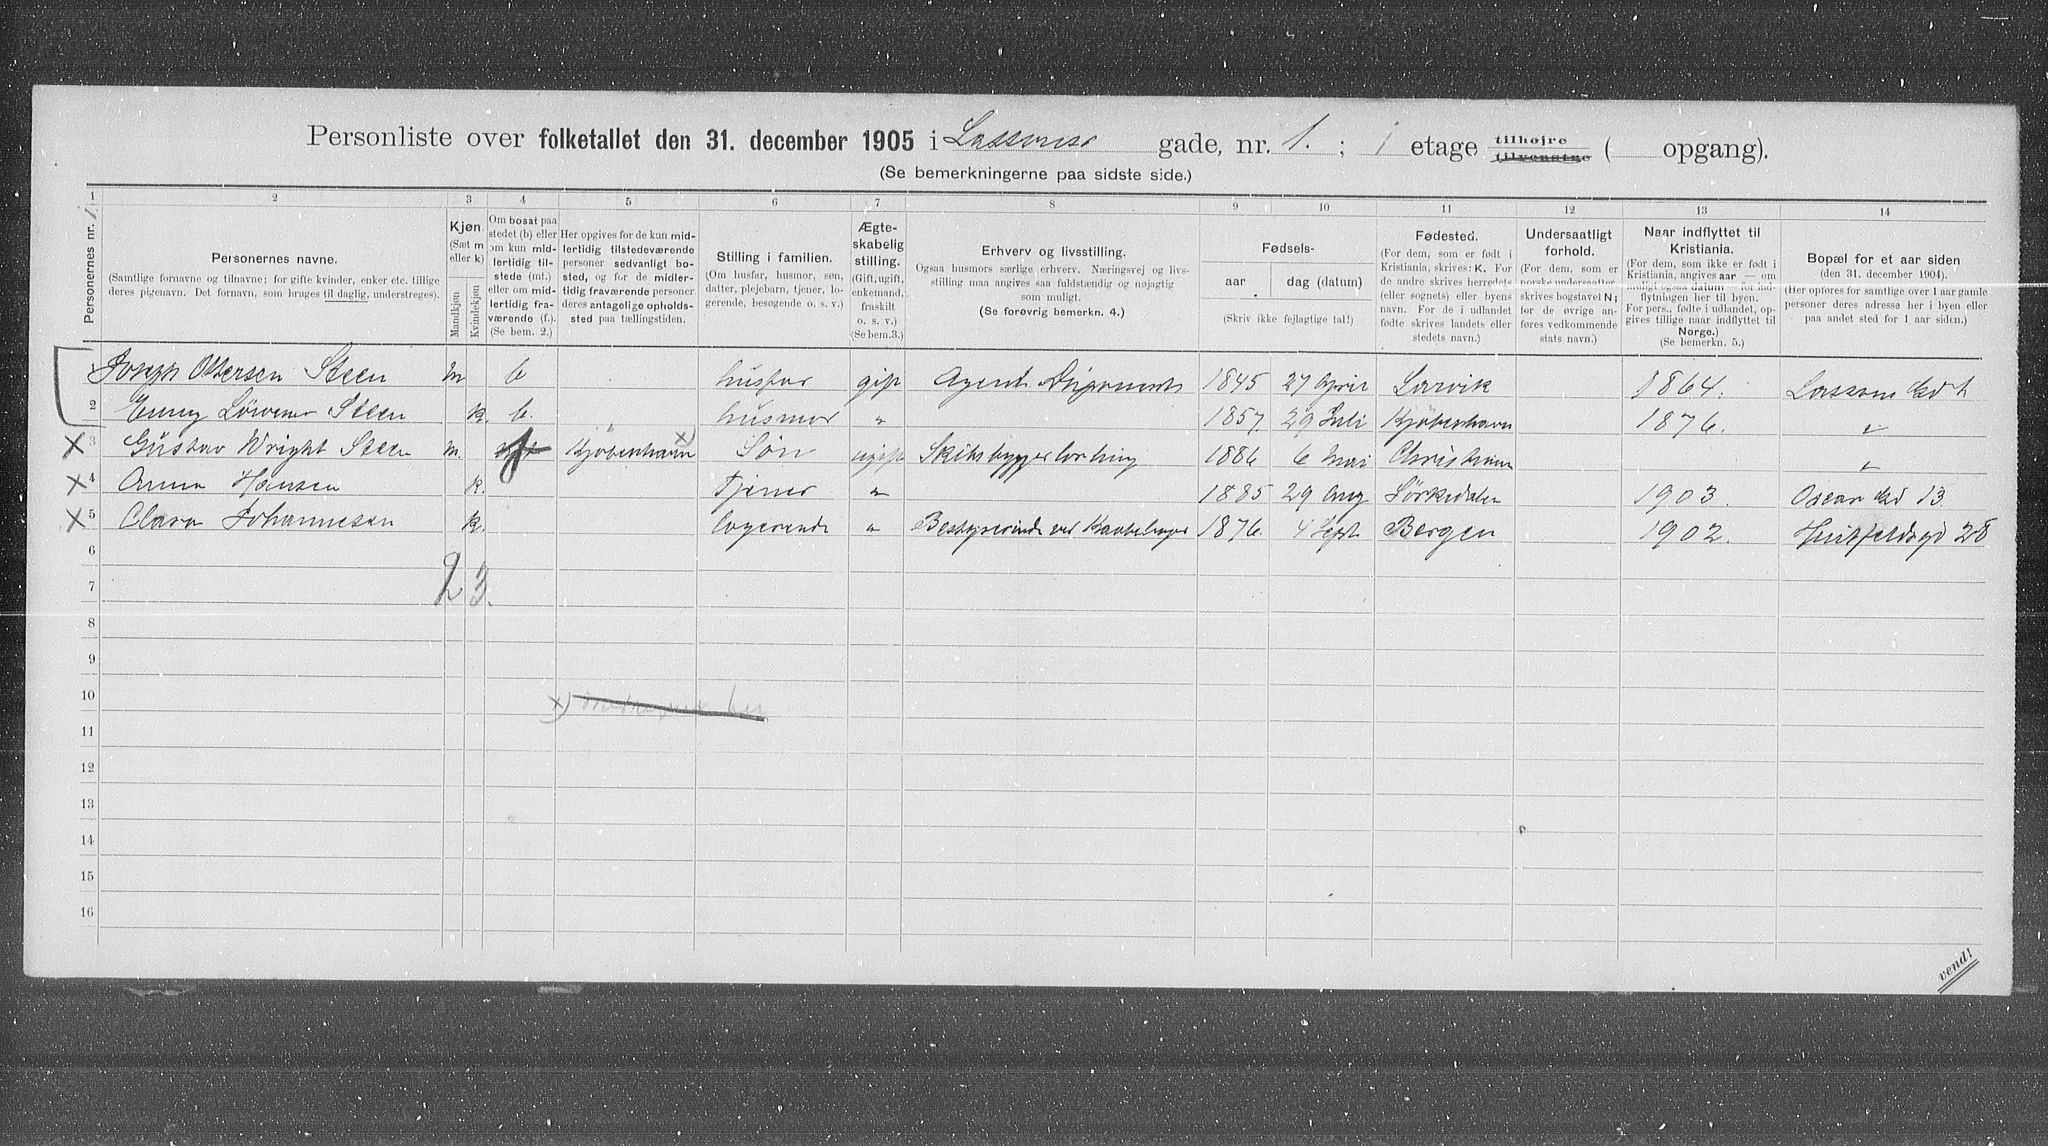 Personliste over folketallet den 31. december 1905 i Lassons gade, nr. 1. ; 1 etage tilhøjre tilvenstre ( opgang).
(Se bemerkningerne paa sidste side.)
1 2 3 4 5 6 7 8 9 10 11 12 13 14
Personernes nr.
Personernes navne.
(Samtlige fornavne og tilnavne; for gifte kvinder, enker etc. tillige
deres pigenavn. Det fornavn, som bruges til daglig, understreges).
Kjøn.
(Sæt m
eller k)
Mandkjøn
Kvindekjøn
Om bosat paa
stedet (b) eller
om kun mid-
lertidig til-
stede (mt.)
eller om mid-
lertidig fra-
værende (f.).
(Se bem. 2.)
Her opgives for de kun mid-
lertidig tilstedeværende
personer sedvanlig bo-
sted, og for de midler-
tidig fraværende personer
deres antagelige opholds-
sted paa tællingstiden.
Stilling i familien.
(Om husfar, husmor, søn,
datter, plejebarn, tjener, lo-
gerende, besøgende o. s. v.)
Ægte-
skabelig
stilling.
(Gift, ugift,
enkemand,
fraskilt
o. s. v.)
(Se bem.3.)
Erhverv og livsstilling.
Ogsaa husmors særlige erhverv. Næringsvej og livs-
stilling maa angives saa fuldstændig og nøjagtig
som muligt.
(Se forøvrig bemerkn. 4.)
Fødsels-
aar
dag (datum)
(Skriv ikke fejlagtige tal!)
Fødested.
(For dem, som er født i
Kristiania, skrives: K. For
de andre skrives herredets
(eller sognets) eller byens
navn. For de i udlandet
fødte skrives landets eller
stedets navn.)
Undersaatligt
forhold.
(For dem, som er
norske undersaatter,
skrives bogstavet N;
for de øvrige an-
føres vedkommende
stats navn.)
Naar indflyttet til
Kristiania.
(For dem, som ikke er født i
Kristiania, angives aar — om
muligt ogsaa datum — for ind-
flytningen her til byen.
For pers., fødte i udlandet, op-
gives tillige naar indflyttet til
Norge.)
(Se bemerkn. 5.)
Bopæl for et aar siden
(den 31. december 1904).
(Her opføres for samtlige over 1 aar gamle
personer deres adresse her i byen eller
paa andet sted for 1 aar siden.)
1 Joseph Ottersen Steen m b husfar gift Agent 1845 27 April Larvik 1864. Lassons Gd 1
2 Enny Löwener Steen k. b. husmor " 1857. 29 Juli Kjøbenhavn 1876. "
X 3 Gustav Wright Steen m. f Kjøbenhavn x) Søn ugift 1886 6 Mai Christiania "
X 4 Anna Hansen k. Tjener " 1885 29 Aug Sørkedalen 1903. Oscar Gd 13.
X 5 Clara Johannesen k. logerende " Bestyrerinde ved 1876. 4 Sept Bergen 1902. Huitfeldsgd 28
6
2 3.
7
8
9
10
x)
11
12
13
14
15
16
vend!